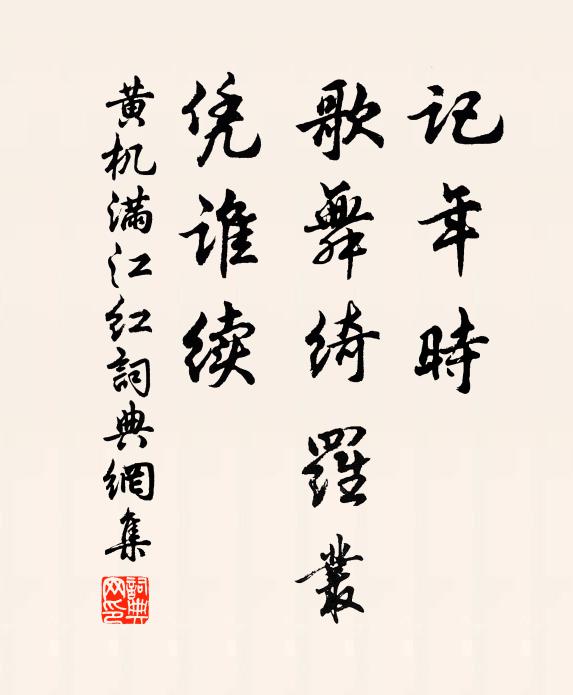 记年時
歌舞绮羅叢
凭谁续
黄机满江红詞典網集
詞典网印